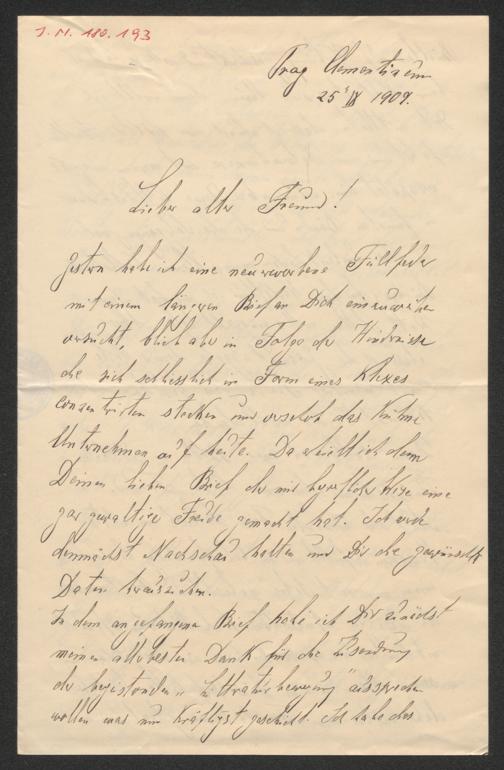 J. N. 180.193
Prag Clementinum
25/IX 1909.
Lieber alter Freund!
Gestern habe ich eine neuerworbene Füllfeder
mit einem längeren Brief an Dich einzuweihen
versucht, blieb aber in Folge der Hindernisse
die sich schliesslich in Form eines Klexes
concentrirten stecken und verschob das kühne
Unternehmen auf heute. Da erhielt ich denn
Deinen lieben Brief der mir begreiflicher Weise eine
gar gewaltige Freude gemacht hat. Ich werde
demnächst Nachschau halten und Dir die gewünschten
Daten heraussuchen.
In dem angefangenen Brief habe ich Dir zunächst
meinen allerbesten Dank für die Zusendung
der " aussprechen
wollen was nun kräftigst geschieht. Ich habe das